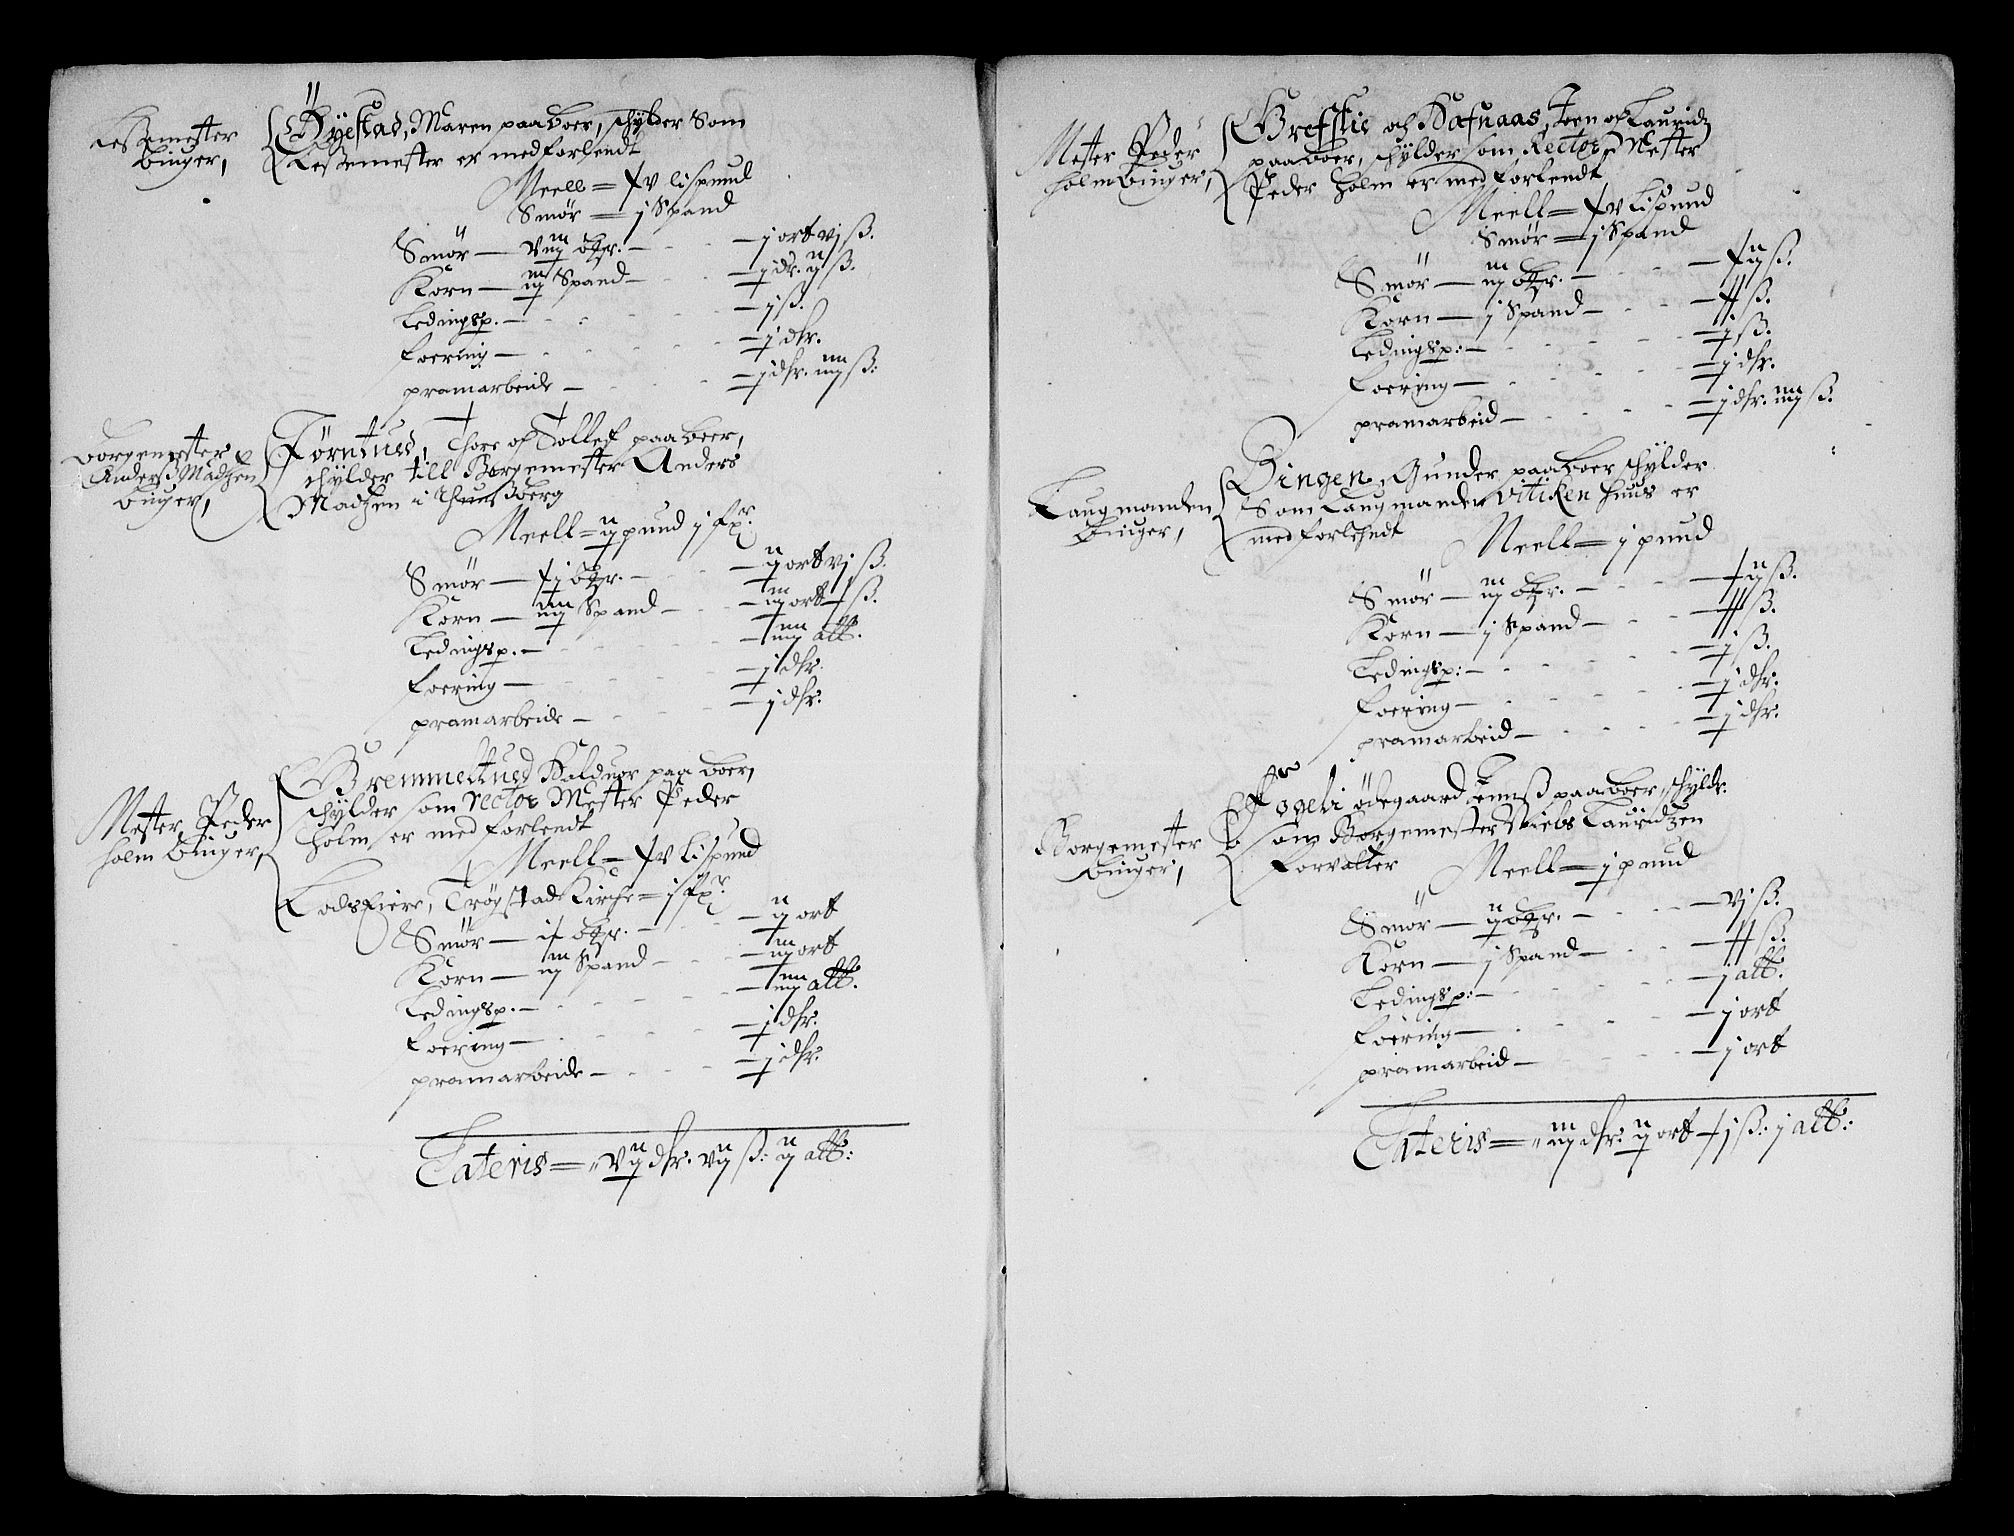 Leßemester
binger,
Øyestad, Maren paaboer, schylder Som
Leßemester er med forlehndt
Meell = xv lispund
Smør = j Spand
Smør — viij bzr. — j ort vj ß.
Korn — iij Spand — j dr. ij ß.
Ledingsp. — j ß.
foering — j dlr.
pramarbeide — j dlr. iiij ß:
Borgemester
Anders Madtzen
binger,
Tørntued, Thore och Tolleff paaboer,
schylder till Borgemester Anders
Madtzen i Thunßberg
Meell = ij pund j fx:
Smør — xj bzr. — ij ort vj ß.
Korn — iiij Spand — iij ort x ß.
Ledingsp. — iiij alb.
foering — j dlr.
pramarbeide — j dlr.
Mester Peder
holm binger,
Gremmeltued Haluor paaboer,
schylder som rector Mester Peder
holm er med forlendt
Meell = xv lispund
Lodseiere, Trøgstad Kirche = j fx:
Smør — ix bzr. — ij ort
Korn — iij Spand — iij ort
Ledingsp. — iiij alb.
foering — j dlr.
pramarbeide — j dlr.
Lateris = vij dlr. vij ß: ij alb:
Mester Peder
holm binger,
Grefslie och Hafnaas, Joen och Lauridz
paaboer, schylder som Rector Mester
Peder Holm er med forlendt
Meell = xv lispund
Smør = j Spand
Smør — iij bzr. — xij ß.
Korn — j Spand — xx ß.
Ledingsp: — j ß.
foering — j dlr.
pramarbeid — j dlr. iiij ß.
Laugmanden
binger,
Bingen, Gunder paaboer schylder
Som Laugmanden Vitiken Huus er
med forlehndt
Meell = j pund
Smør — iij bzr. — xij ß.
Korn — j Spand — xx ß.
Ledingsp: — j ß.
foering — j dlr.
pramarbeid — j dlr.
Borgemester
binger,
ødegaard Jenns paaboer, schylder
som Borgemester Niels Lauridzen
forvalter
Meell = j pund
Smør — ij bzr. — vj ß.
Korn — j Spand — xx ß.
Ledingsp: — j alb.
foering — j ort
pramarbeid — j ort
Lateris = iij dlr. ij ort xj ß: j alb: